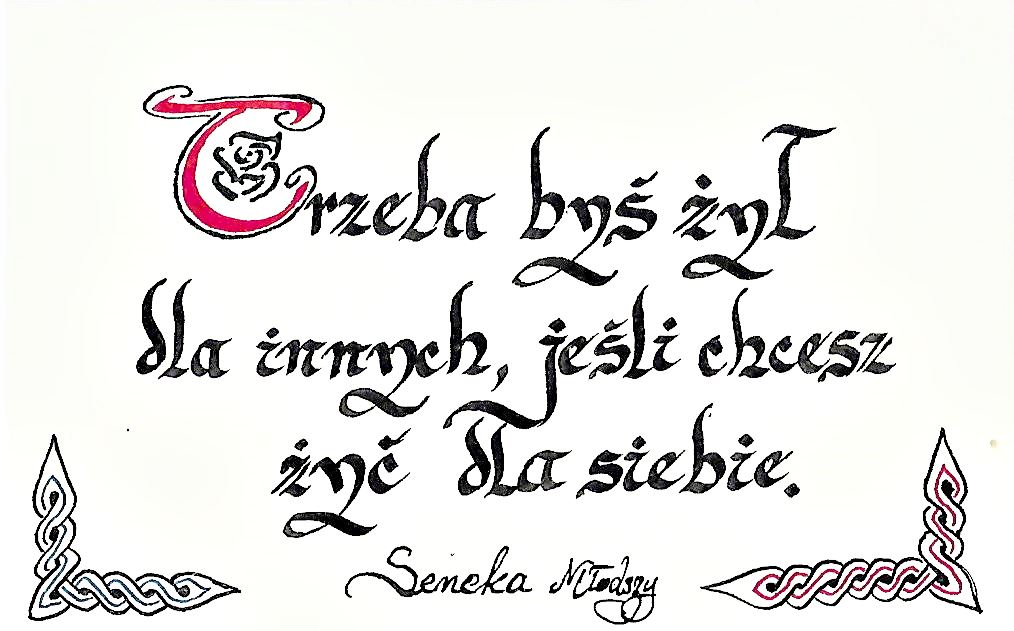 Trzeba byś żył
dla innych, jeśli chcesz
żyć dla siebie.
Seneka Młodszy